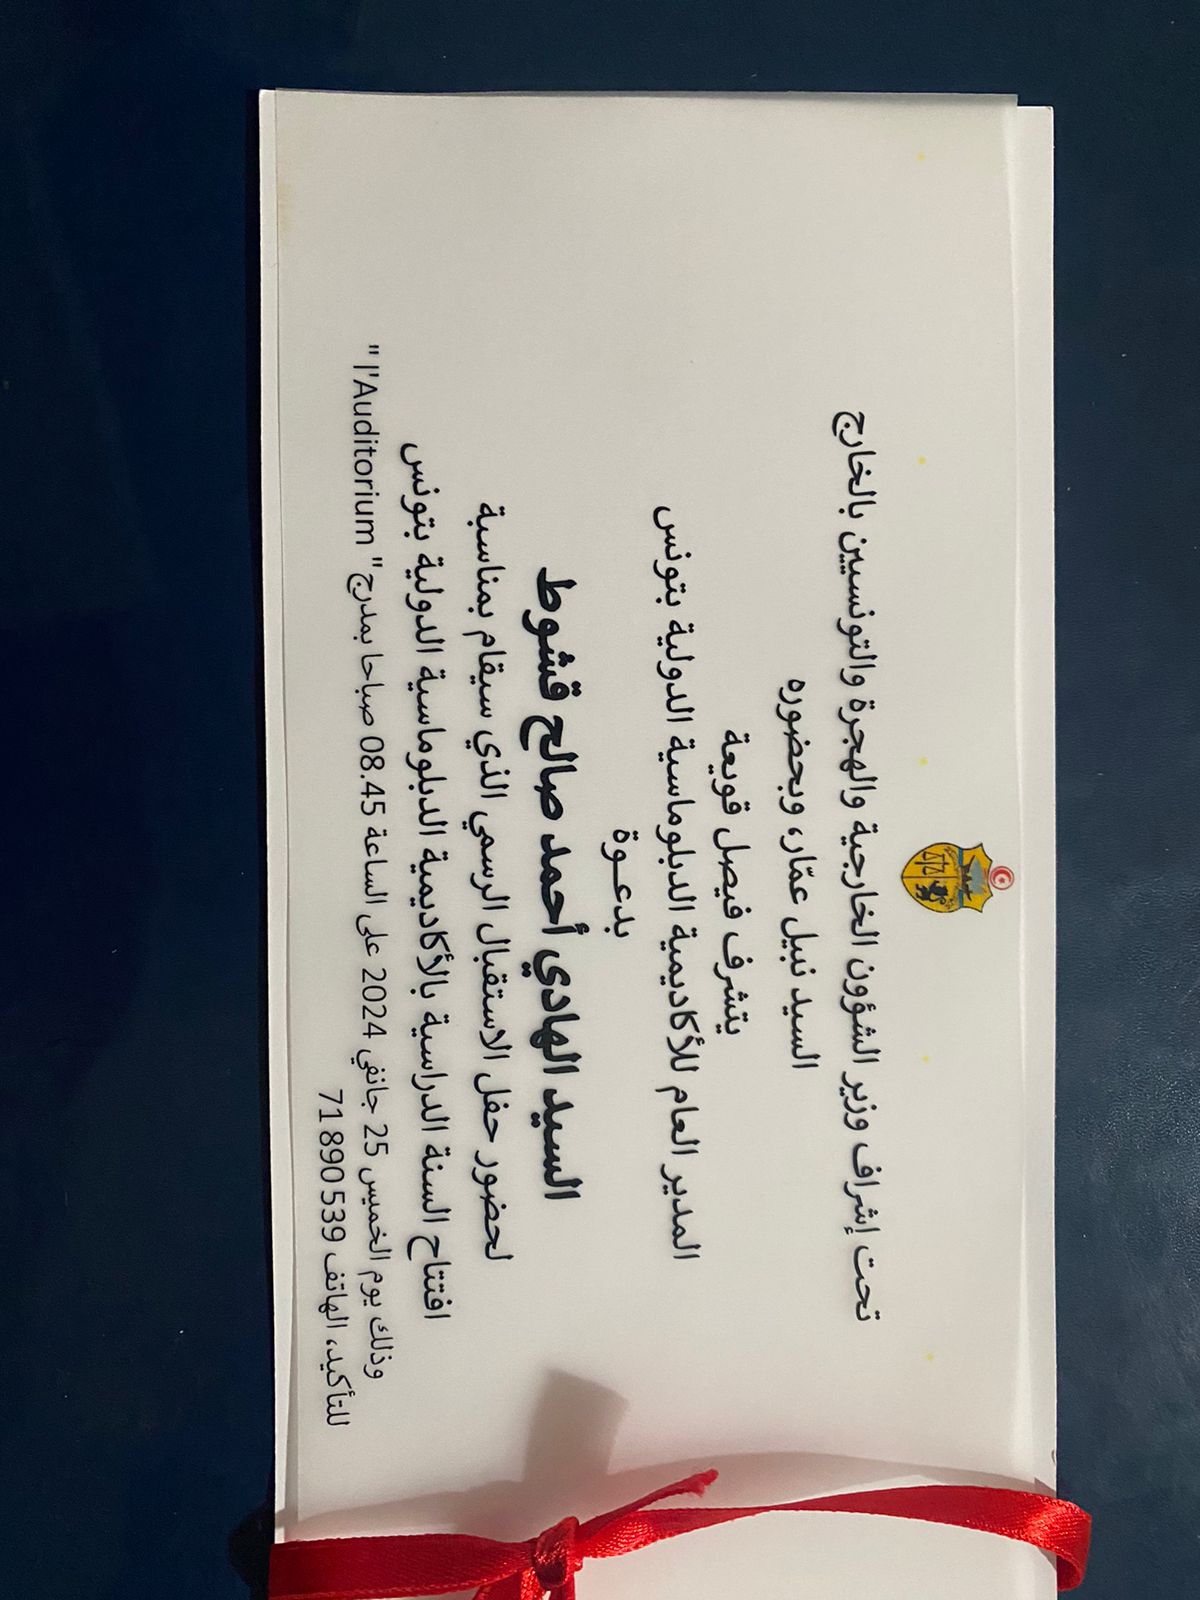 تحت إشراف وزير الشؤون الخارجية والهجرة والتونسيين بالخارج
السيد نبيل عمّار، وبحضوره
يتشرف فيصل قويعة
المدير العام للأكاديمية الدبلوماسية الدولية بتونس
بدعـوة
السيد الهادي أحمد صالح قشوط
لحضور حفل الاستقبال الرسمي الذي سيقام بمناسبة
افتتاح السنة الدراسية بالأكاديمية الدبلوماسية الدولية بتونس
وذلك يوم الخميس 25 جانفي 2024 على الساعة 08.45 صباحا بمدرج "l'Auditorium "
للتأكيد، الهاتف 71 890 539